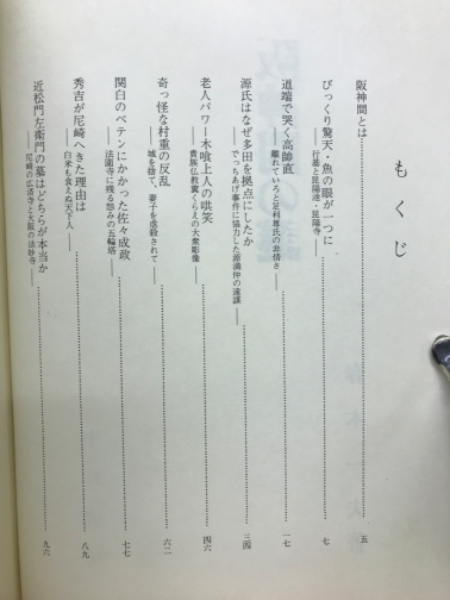 もくじ
阪神間とは……五
びっくり驚天・魚の眼が一つに……七
――行基と昆陽池・昆陽寺――
道端で哭く高師直……一七
――離れていろと足利尊氏の非情さ――
源氏はなぜ多田を拠点にしたか……三四
――でっちあげ事件に協力した源満仲の遠謀――
老人パワー木喰上人の哄笑……四六
――貴族仏教糞くらえの大衆彫像――
奇っ怪な村重の反乱……六二
――城を捨て、妻子を虐殺されて――
関白のペテンにかかった佐々成政……七七
――法園寺に残る怨みの五輪塔――
秀吉が尼崎へきた理由は……八九
――白米も食えぬ天下人――
近松門左衛門の墓はどちらが本当か……九六
――尼崎の広済寺と大阪の法妙寺――